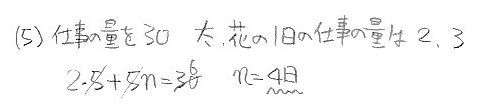 (5) 仕事の量を30 太、花の1日の仕事の量は 2、3
2・5+5n=30 6 n=4日